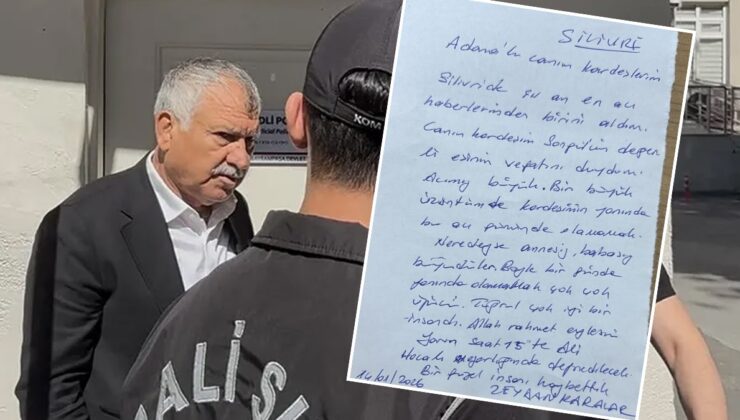 DLİ PO
KOM
ALİ S
SİLİVRİ
Adana'lı canım kardeşlerim
Silivride şu an en acı
haberlerinden birini aldım.
Canım kardeşim Songül'ün değer
li eşinin vefatını duydum.
Acımız büyük. Bir büyük
üzüntüm de kardeşimin yanında
bu acı gününde olamamak.
Neredeyse annesiz, babasız
büyüdüler. Böyle bir günde
yanında olamamak çok çok
üzücü. Tuğrul çok iyi bir
insandı. Allah rahmet eylesin
Yarın saat 15'te Ali
Hocalı mezarlığında defnedilecek.
Bir güzel insanı kaybettik
14/01/2026 ZEYDAN KARALAR